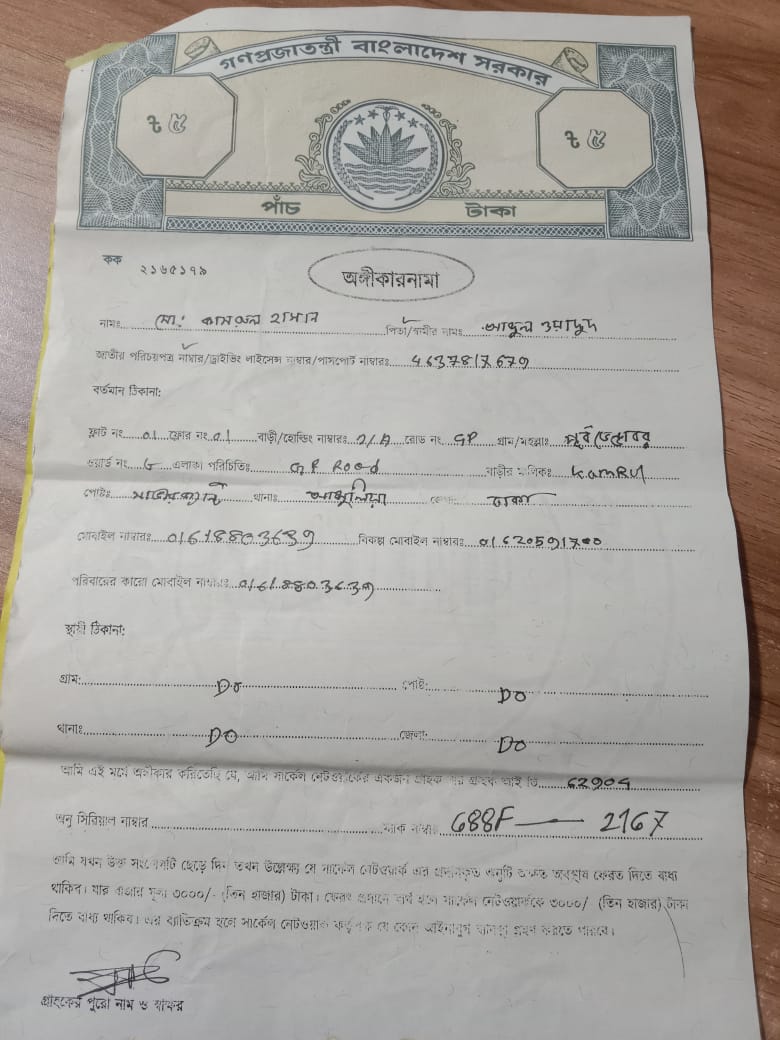 গণপ্রজাতন্ত্রী বাংলাদেশ সরকার
৳ ৫ ৳ ৫
পাঁচ টাকা
কক ২১৬৫১৭৯
অঙ্গীকারনামা
নামঃ মোঃ কামরুল হাসান পিতা/স্বামীর নামঃ আব্দুল ওয়াদুদ
জাতীয় পরিচয়পত্র নাম্বার/ড্রাইভিং লাইসেন্স নাম্বার/পাসপোর্ট নাম্বারঃ 4637817679
বর্তমান ঠিকানা:
ফ্লাট নং 01 ফ্লোর নং 01 বাড়ী/হোল্ডিং নাম্বারঃ 2/A রোড নং GP গ্রাম/মহল্লাঃ পূর্ব
ওয়ার্ড নং G এলাকা পরিচিতিঃ Road বাড়ীর মালিকঃ Kamrul
পোষ্টঃ থানাঃ আশুলিয়া জেলাঃ ঢাকা
মোবাইল নাম্বারঃ 01618803639 বিকল্প মোবাইল নাম্বারঃ 01620591700
পরিবারের কারো মোবাইল নাম্বারঃ 01618803639
স্থায়ী ঠিকানা:
গ্রাম: Do পোষ্ট: Do
থানাঃ Do জেলা: Do
আমি এই মর্মে অঙ্গীকার করিতেছি যে, আমি সার্কেল নেটওয়ার্কের একজন গ্রাহক যার গ্রাহক আই ডি 62904
অনু সিরিয়াল নাম্বার ম্যাক নাম্বার 688F — 2167
আমি যখন উক্ত সংযোগটি ছেড়ে দিব তখন উল্লেক্ষ্য যে সার্কেল নেটওয়ার্ক এর প্রদানকৃত অনুটি অক্ষত অবস্থায় ফেরত দিতে বাধ্য
থাকিব। যার বাজার মূল্য ৩০০০/- (তিন হাজার) টাকা। ফেরৎ প্রদানে ব্যর্থ হলে সার্কেল নেটওয়ার্ককে ৩০০০/- (তিন হাজার) টাকা
দিতে বাধ্য থাকিব। এর ব্যাতিক্রম হলে সার্কেল নেটওয়ার্ক কর্তৃপক্ষ যে কোন আইনানুগ ব্যবস্থা গ্রহন করতে পারবে।
গ্রাহকের পুরো নাম ও স্বাক্ষর